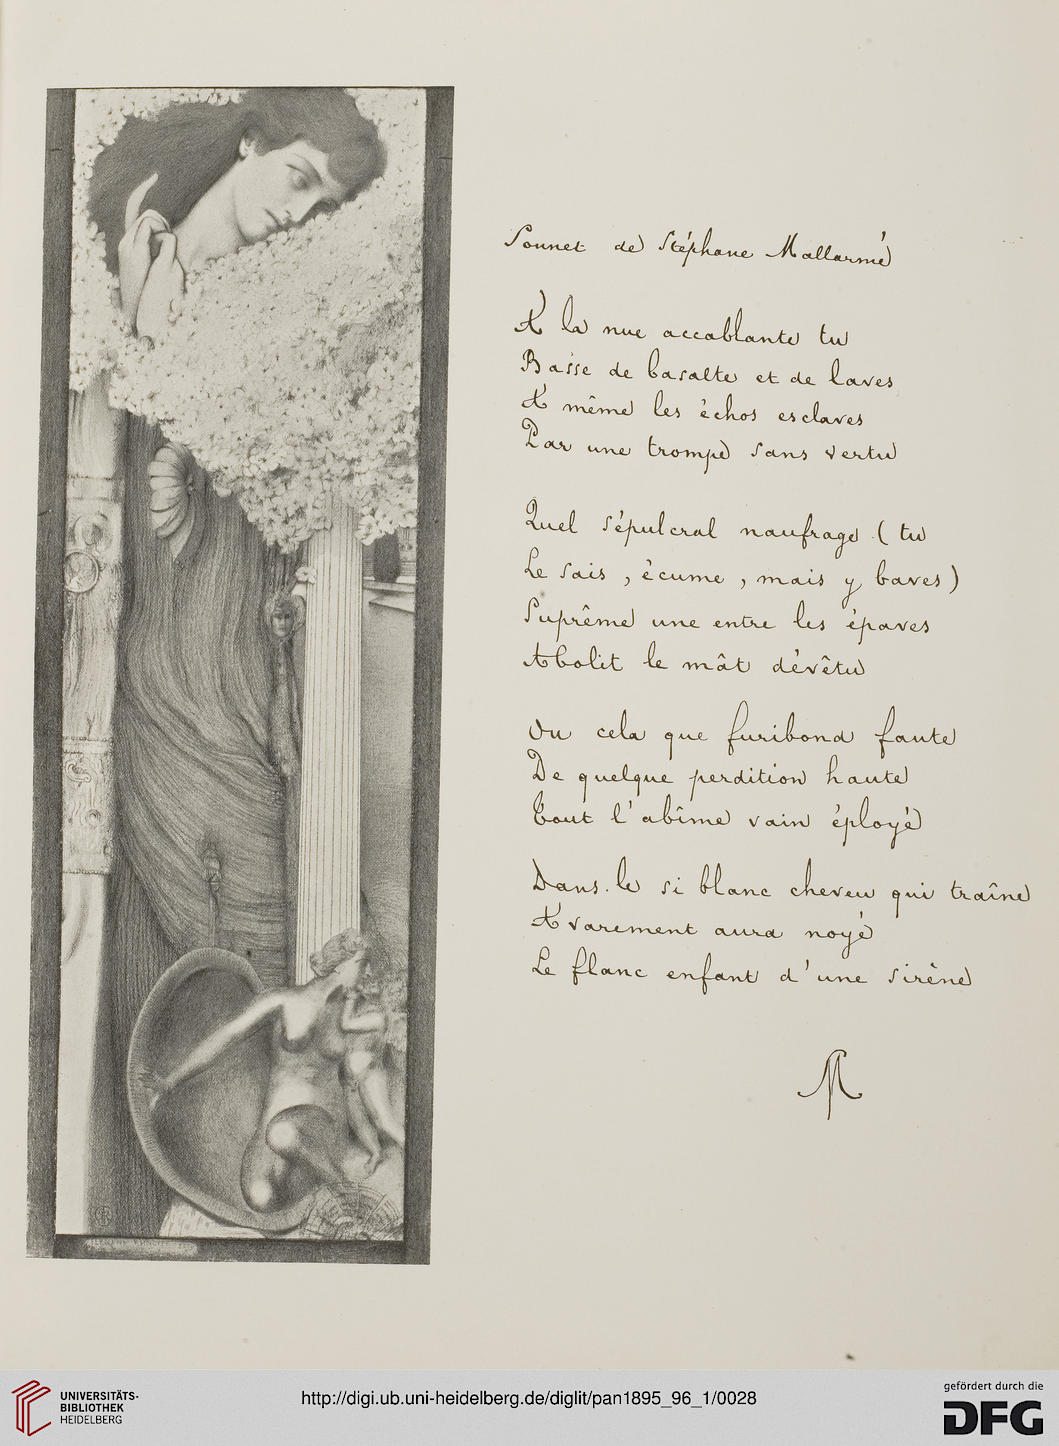 Sonnet de Stéphane Mallarmé
A la nue accablante tu
Basse de basalte et de laves
A même les échos esclaves
Par une trompe sans vertu
Quel sépulcral naufrage (tu
Le sais, écume, mais y baves)
Suprême une entre les épaves
Abolit le mât dévêtu
Ou cela que furibond faute
De quelque perdition haute
Tout l'abîme vain éployé
Dans le si blanc cheveu qui traîne
Avarement aura noyé
Le flanc enfant d'une sirène
M
UNIVERSITÄTS-
BIBLIOTHEK
HEIDELBERG
http://digi.ub.uni-heidelberg.de/diglit/pan1895_96_1/0028
gefördert durch die
DFG